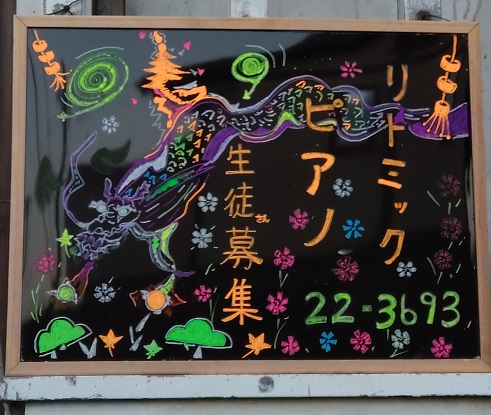 リトミック
ピアノ
生徒さん募集
22-3693